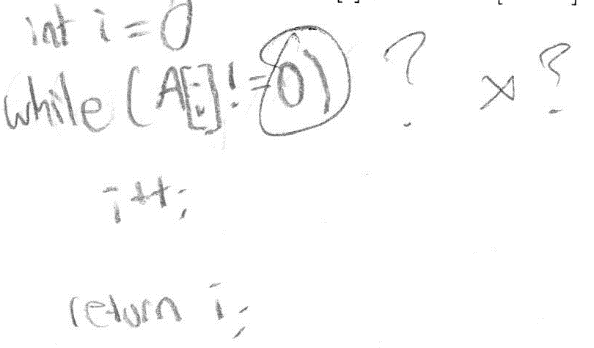 int i = 0
while (A[i] != 0) ? x ?
i++;
return i;